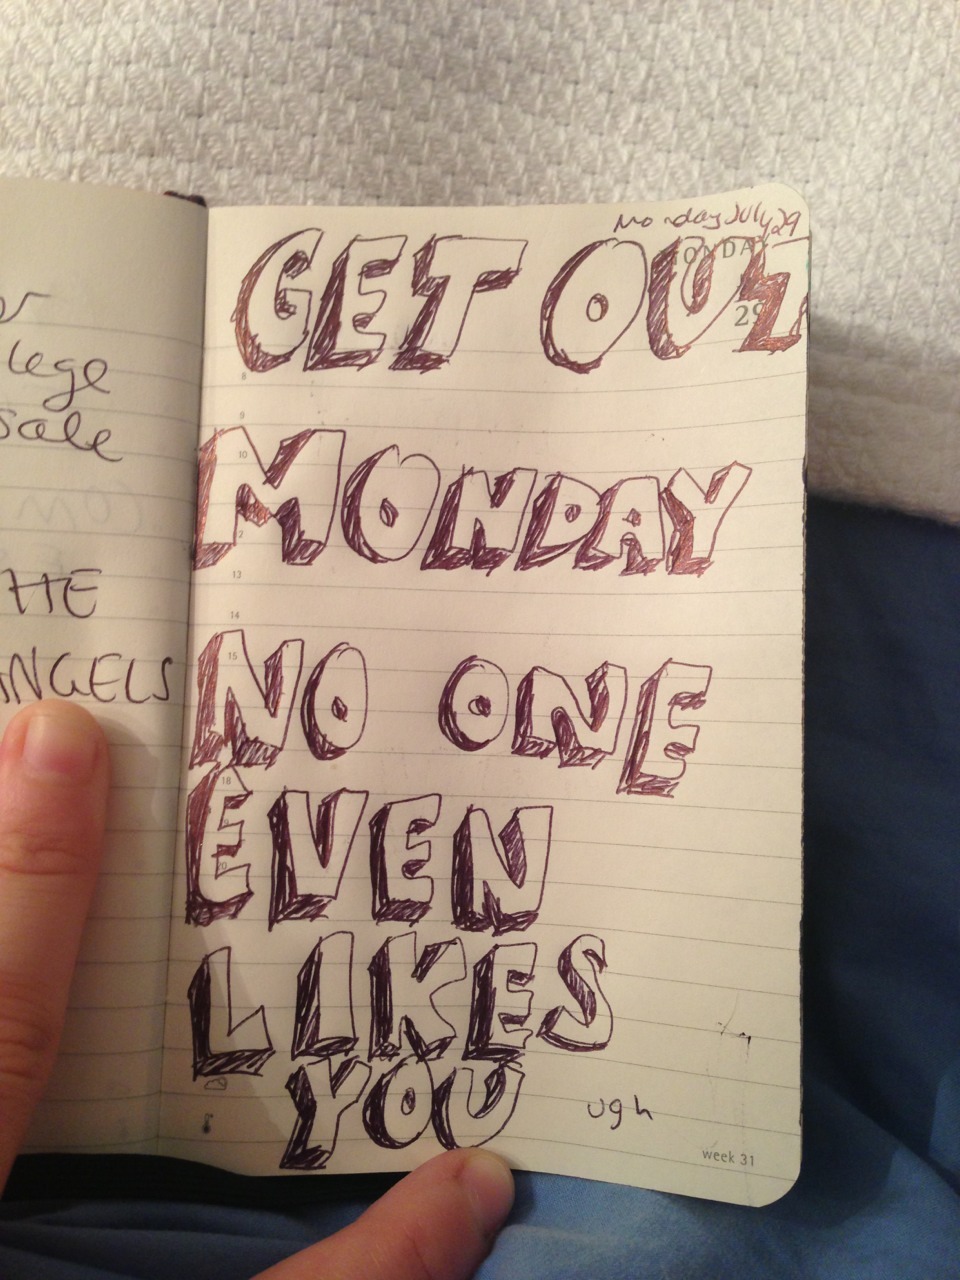 lege
sale
THE
ANGELS
Monday July 29
MONDAY
29
GET OUT
8
9
10
MONDAY
2
13
14
15
NO ONE
18
EVEN
20
LIKES
YOU
ugh
week 31